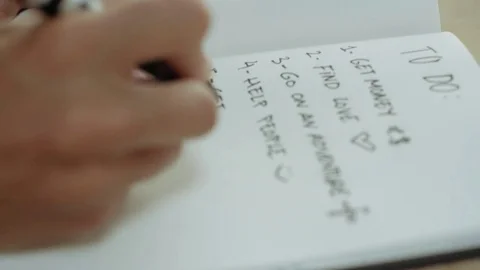 TO DO:
1- GET MONEY €$
2- FIND LOVE ♡
3- GO ON AN ADVENTURE
4- HELP PEOPLE